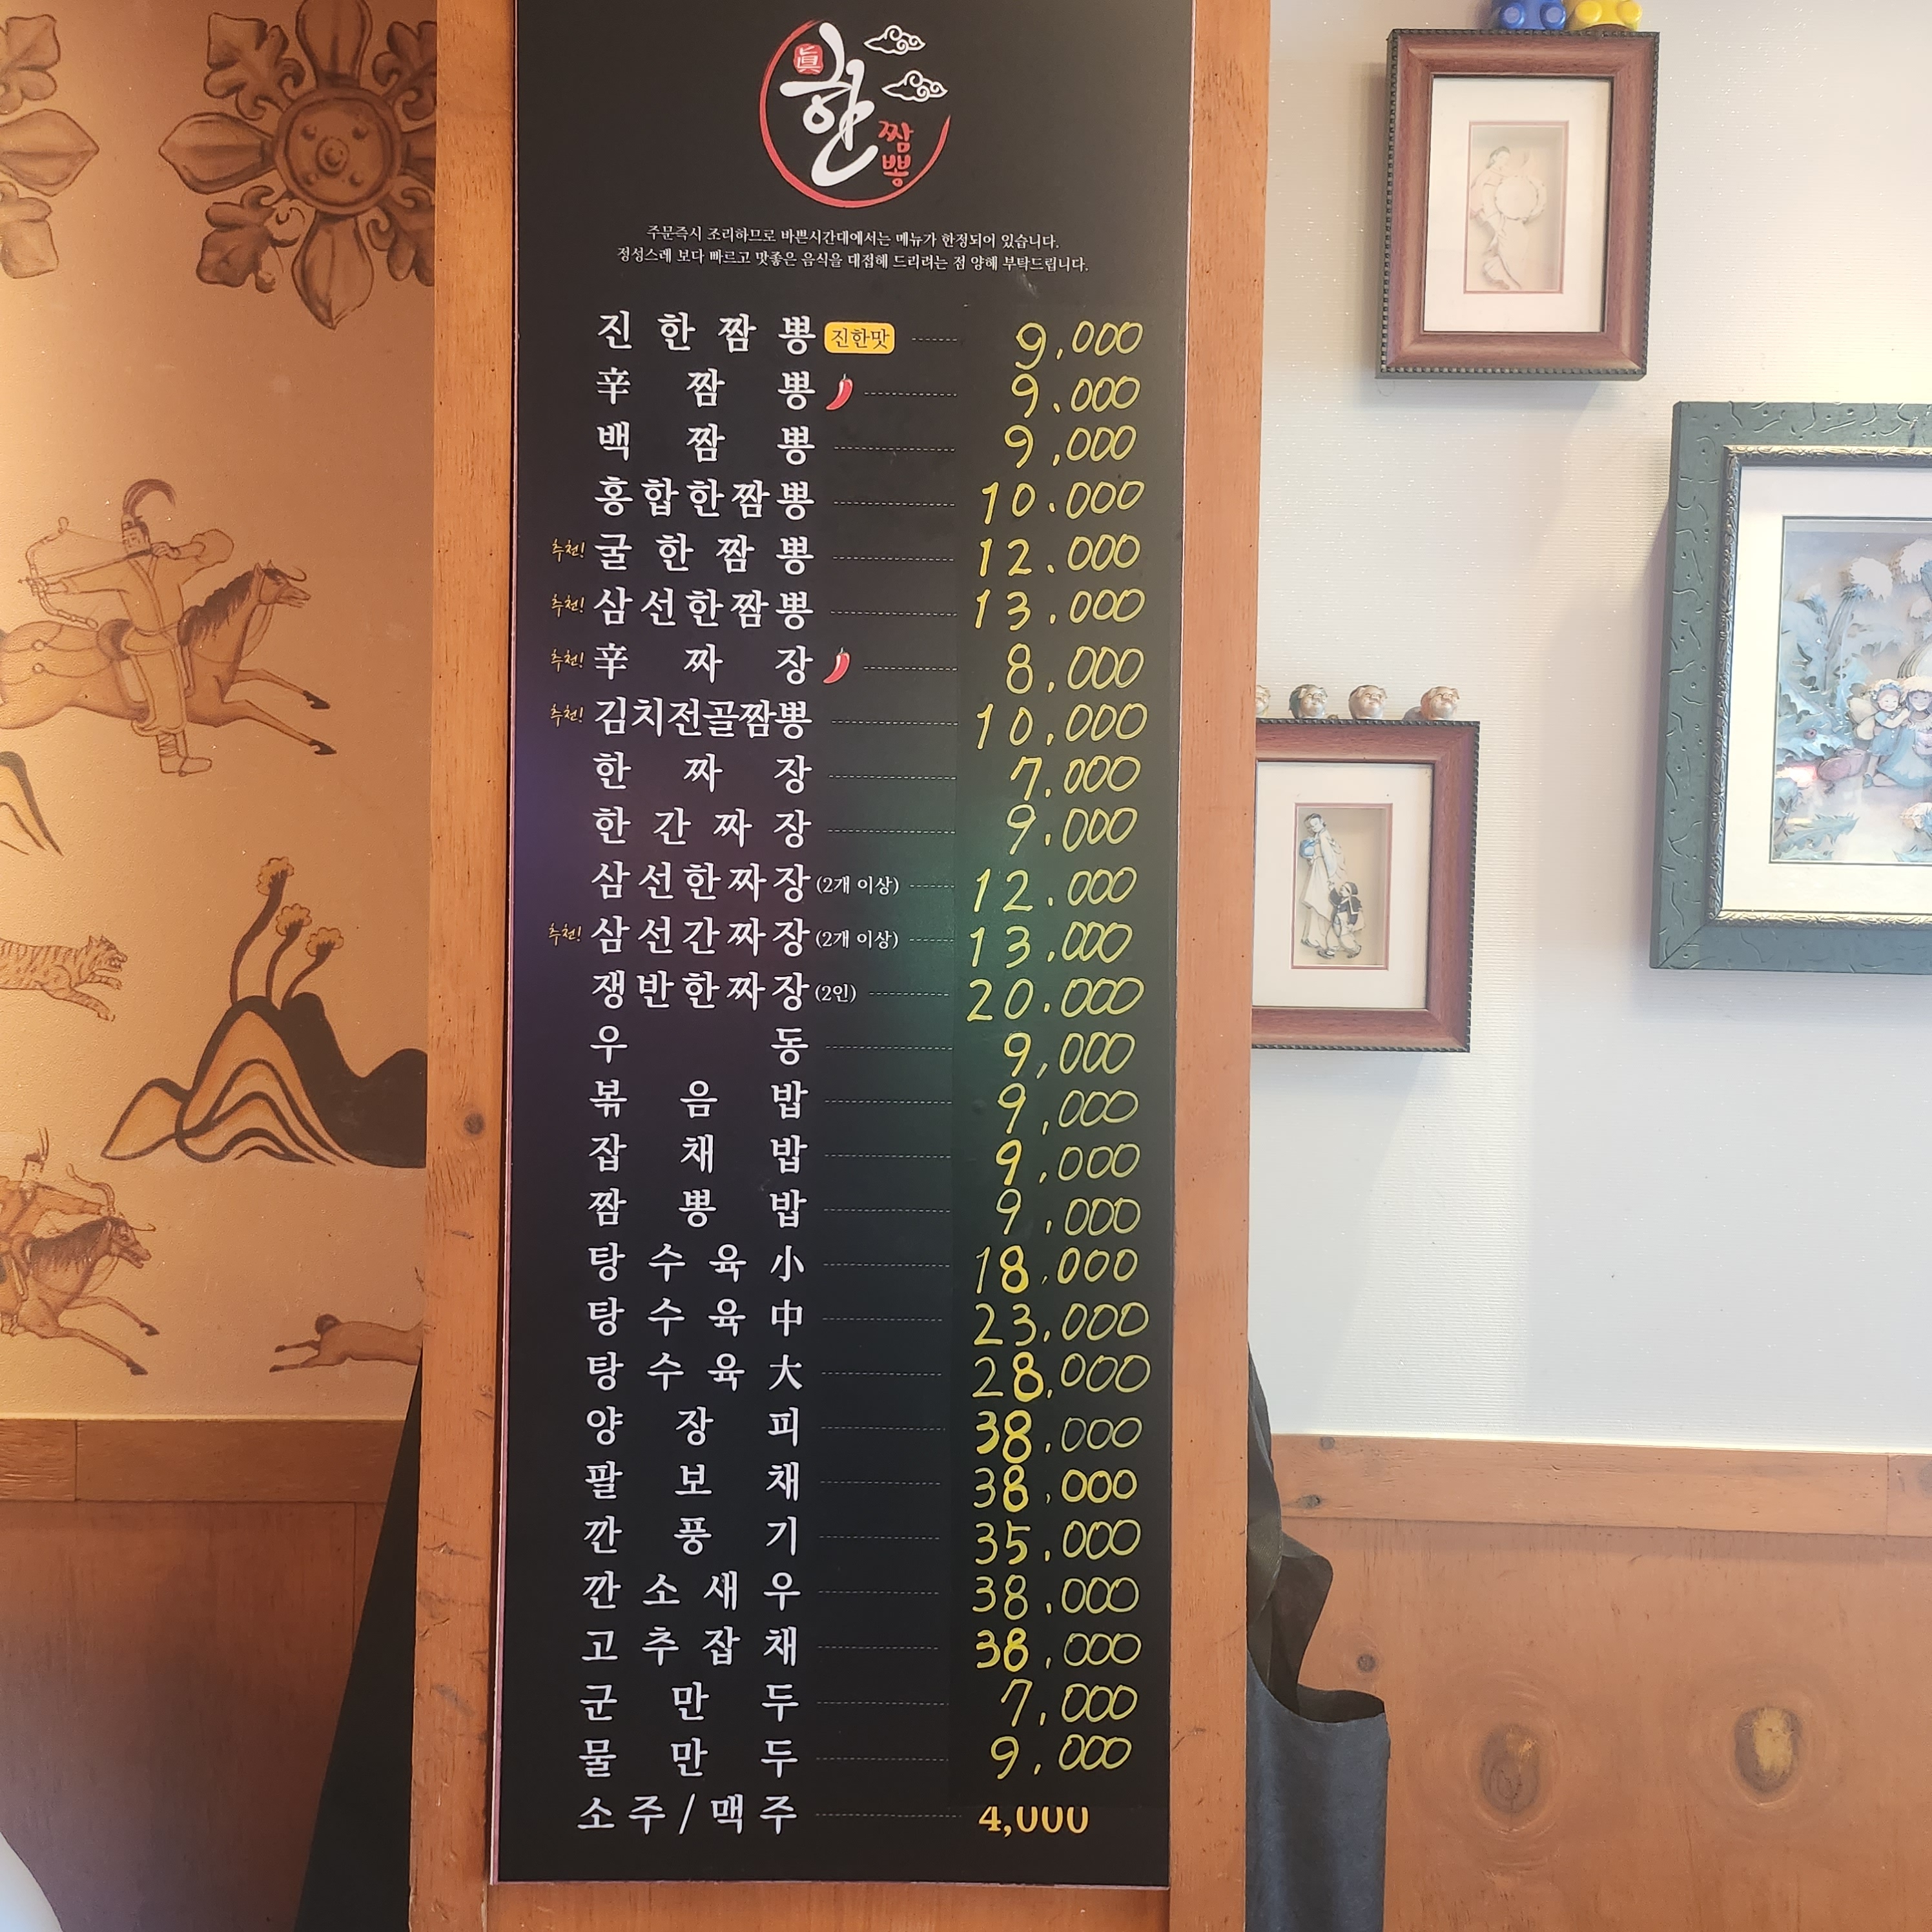 眞
한
짬뽕
주문즉시 조리하므로 바쁜시간대에서는 메뉴가 한정되어 있습니다.
정성스레 보다 빠르고 맛좋은 음식을 대접해 드리려는 점 양해 부탁드립니다.
진한짬뽕 진한맛 9,000
辛짬뽕 9.000
백짬뽕 9,000
홍합한짬뽕 10.000
추천! 굴한짬뽕 12.000
추천! 삼선한짬뽕 13.000
추천! 辛짜장 8,000
추천! 김치전골짬뽕 10,000
한짜장 7.000
한간짜장 9.000
삼선한짜장(2개 이상) 12.000
추천! 삼선간짜장(2개 이상) 13.000
쟁반한짜장(2인) 20.000
우동 9,000
볶음밥 9,000
잡채밥 9,000
짬뽕밥 9,000
탕수육小 18,000
탕수육中 23,000
탕수육大 28,000
양장피 38,000
팔보채 38,000
깐풍기 35,000
깐소새우 38,000
고추잡채 38,000
군만두 7,000
물만두 9,000
소주/맥주 4,000